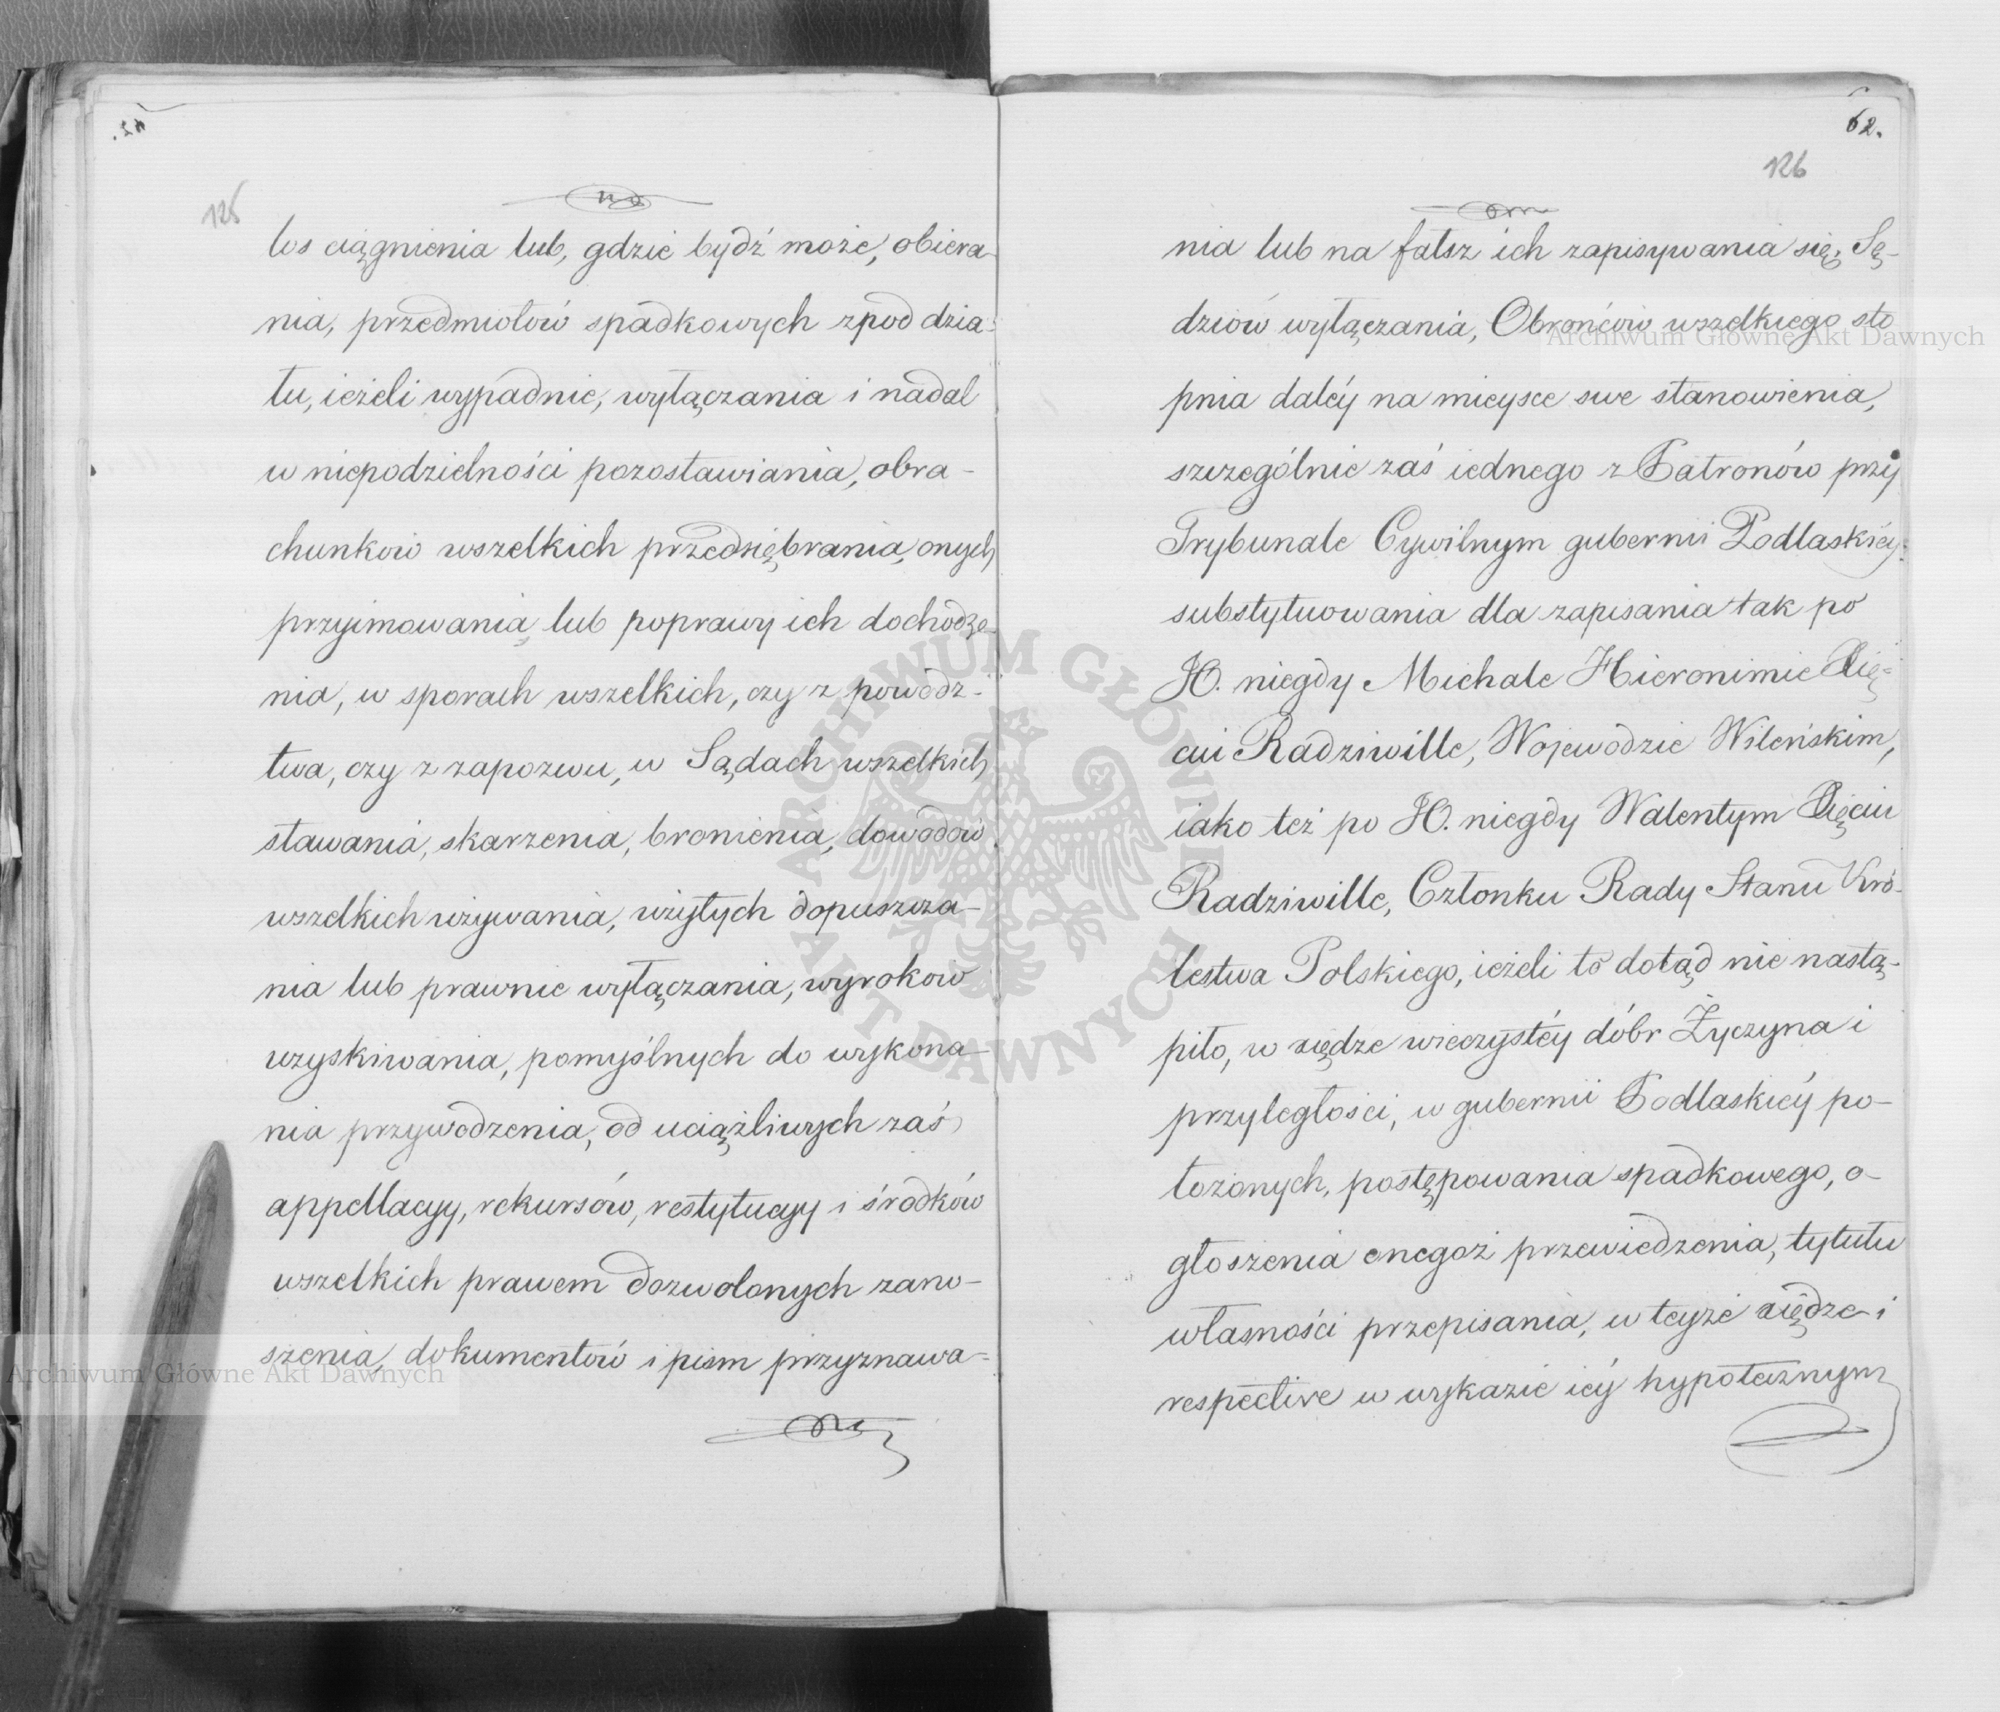 125
los ciągnienia lub, gdzie bydź może, obiera-
nia, przedmiotów spadkowych z pod dzia-
łu, ieżeli wypadnie, wyłączania i nadal
w niepodzielności pozostawiania, obra-
chunków wszelkich przedsiębrania, onych
przyimowania lub poprawy ich dochodze-
nia, w sporach wszelkich, czy z powódz-
twa, czy z zapozwu, w Sądach wszelkich
stawania, skarzenia, bronienia, dowodów
wszelkich używania, użytych dopuszcza-
nia lub prawnie wyłączania, wyroków
uzyskiwania, pomyślnych do wykona-
nia przywodzenia, od uciążliwych zaś
appellacyy, rekursów, restytucyy i środków
wszelkich prawem dozwolonych zano-
szenia, dokumentów i pism przyznawa-
62.
126
nia lub na fałsz ich zapisywania się, Sę-
dziów wyłączania, Obrońców wszelkiego sto
pnia daléy na mieysce swe stanowienia,
szczególnie zaś iednego z Patronów przy
Trybunale Cywilnym gubernii Podlaskiéy
substytuowania dla zapisania tak po
JO. niegdy Michale Hieronimie Xię-
ciu Radziwille, Wojewodzie Wileńskim,
iako też po JO. niegdy Walentym Xięciu
Radziwille, Członku Rady Stanu Kró-
lestwa Polskiego, ieżeli to dotąd nie nastą-
piło, w xiędze wieczystéy dóbr Życzyna i
przyległości, w gubernii Podlaskiéy po-
łożonych, postępowania spadkowego, o-
głoszenia onegoż przewiedzenia, tytułu
własności przepisania, w teyże xiędze i
respective w wykazie iéy hypotecznym
Archiwum Główne Akt Dawnych
Archiwum Główne Akt Dawnych
ARCHIWUM GŁÓWNE AKT DAWNYCH